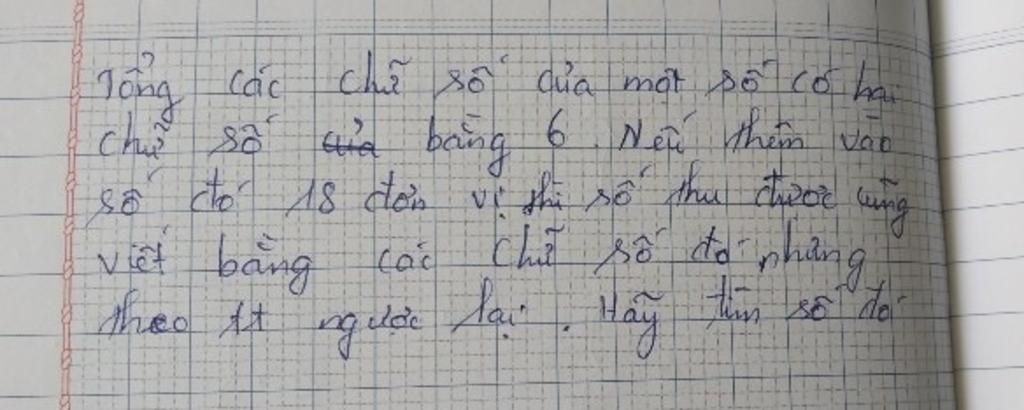 Tổng các chữ số của một số có hai
chữ số của bằng 6. Nếu thêm vào
số đó 18 đơn vị thì số thu được cũng
viết bằng các chữ số đó nhưng
theo tt ngược lại. Hãy tìm số đó